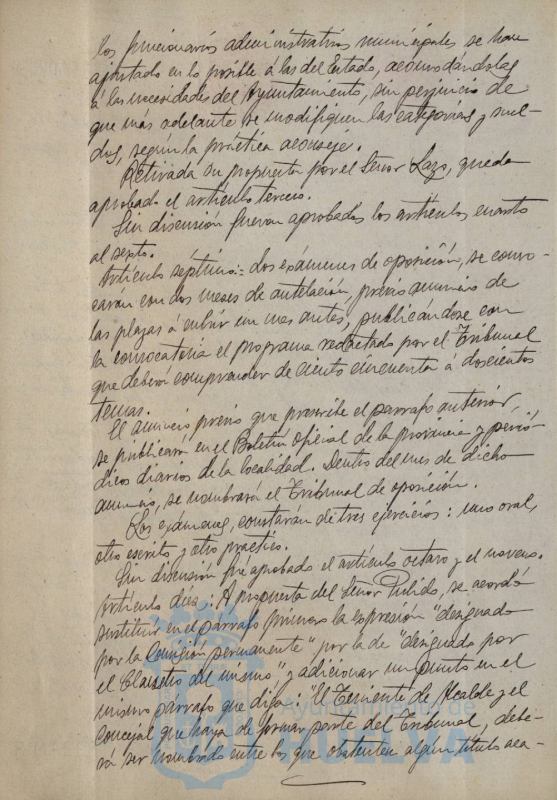 los funcionarios administrativos municipales se han
ajustado en lo posible á las del Estado, acomodándolas
á las necesidades del Ayuntamiento, sin perjuicio de
que más adelante se modifiquen las categorías y suel-
dos, según la práctica aconseje.
Retirada su propuesta por el Señor Lazo, queda
aprobado el artículo tercero.
Sin discusión fueron aprobados los artículos cuarto
al septo.
Artículo séptimo: = dos exámenes de oposición, se convo-
caran con dos meses de antelación, previo anuncio de
las plazas á cubrir un mes antes, publicándose con
la convocatoria el programa redactado por el Tribunal
que deberá comprender de ciento cincuenta á doscientos
temas.
El anuncio previo que prescribe el párrafo anterior,
se publicará en el Boletín Oficial de la provincia y perió-
dicos diarios de la localidad. Dentro del mes de dicho
anuncio, se nombrará el Tribunal de oposición.
Los exámenes, constarán de tres ejercicios: uno oral,
otro escrito y otro práctico.
Sin discusión fue aprobado el artículo octavo y el noveno.
Artículo diez: A propuesta del Señor Pulido, se acordó
sustituir en el párrafo primero la expresión "designado
por la Comisión permanente" por la de "designado por
el Claustro del mismo", y adicionar un punto en el
mismo párrafo que diga: "El Teniente de Alcalde y el
Concejal que haya de formar parte del Tribunal, debe-
rá ser nombrado entre los que ostenten algún título aca-
Ayuntamiento de
HUELVA